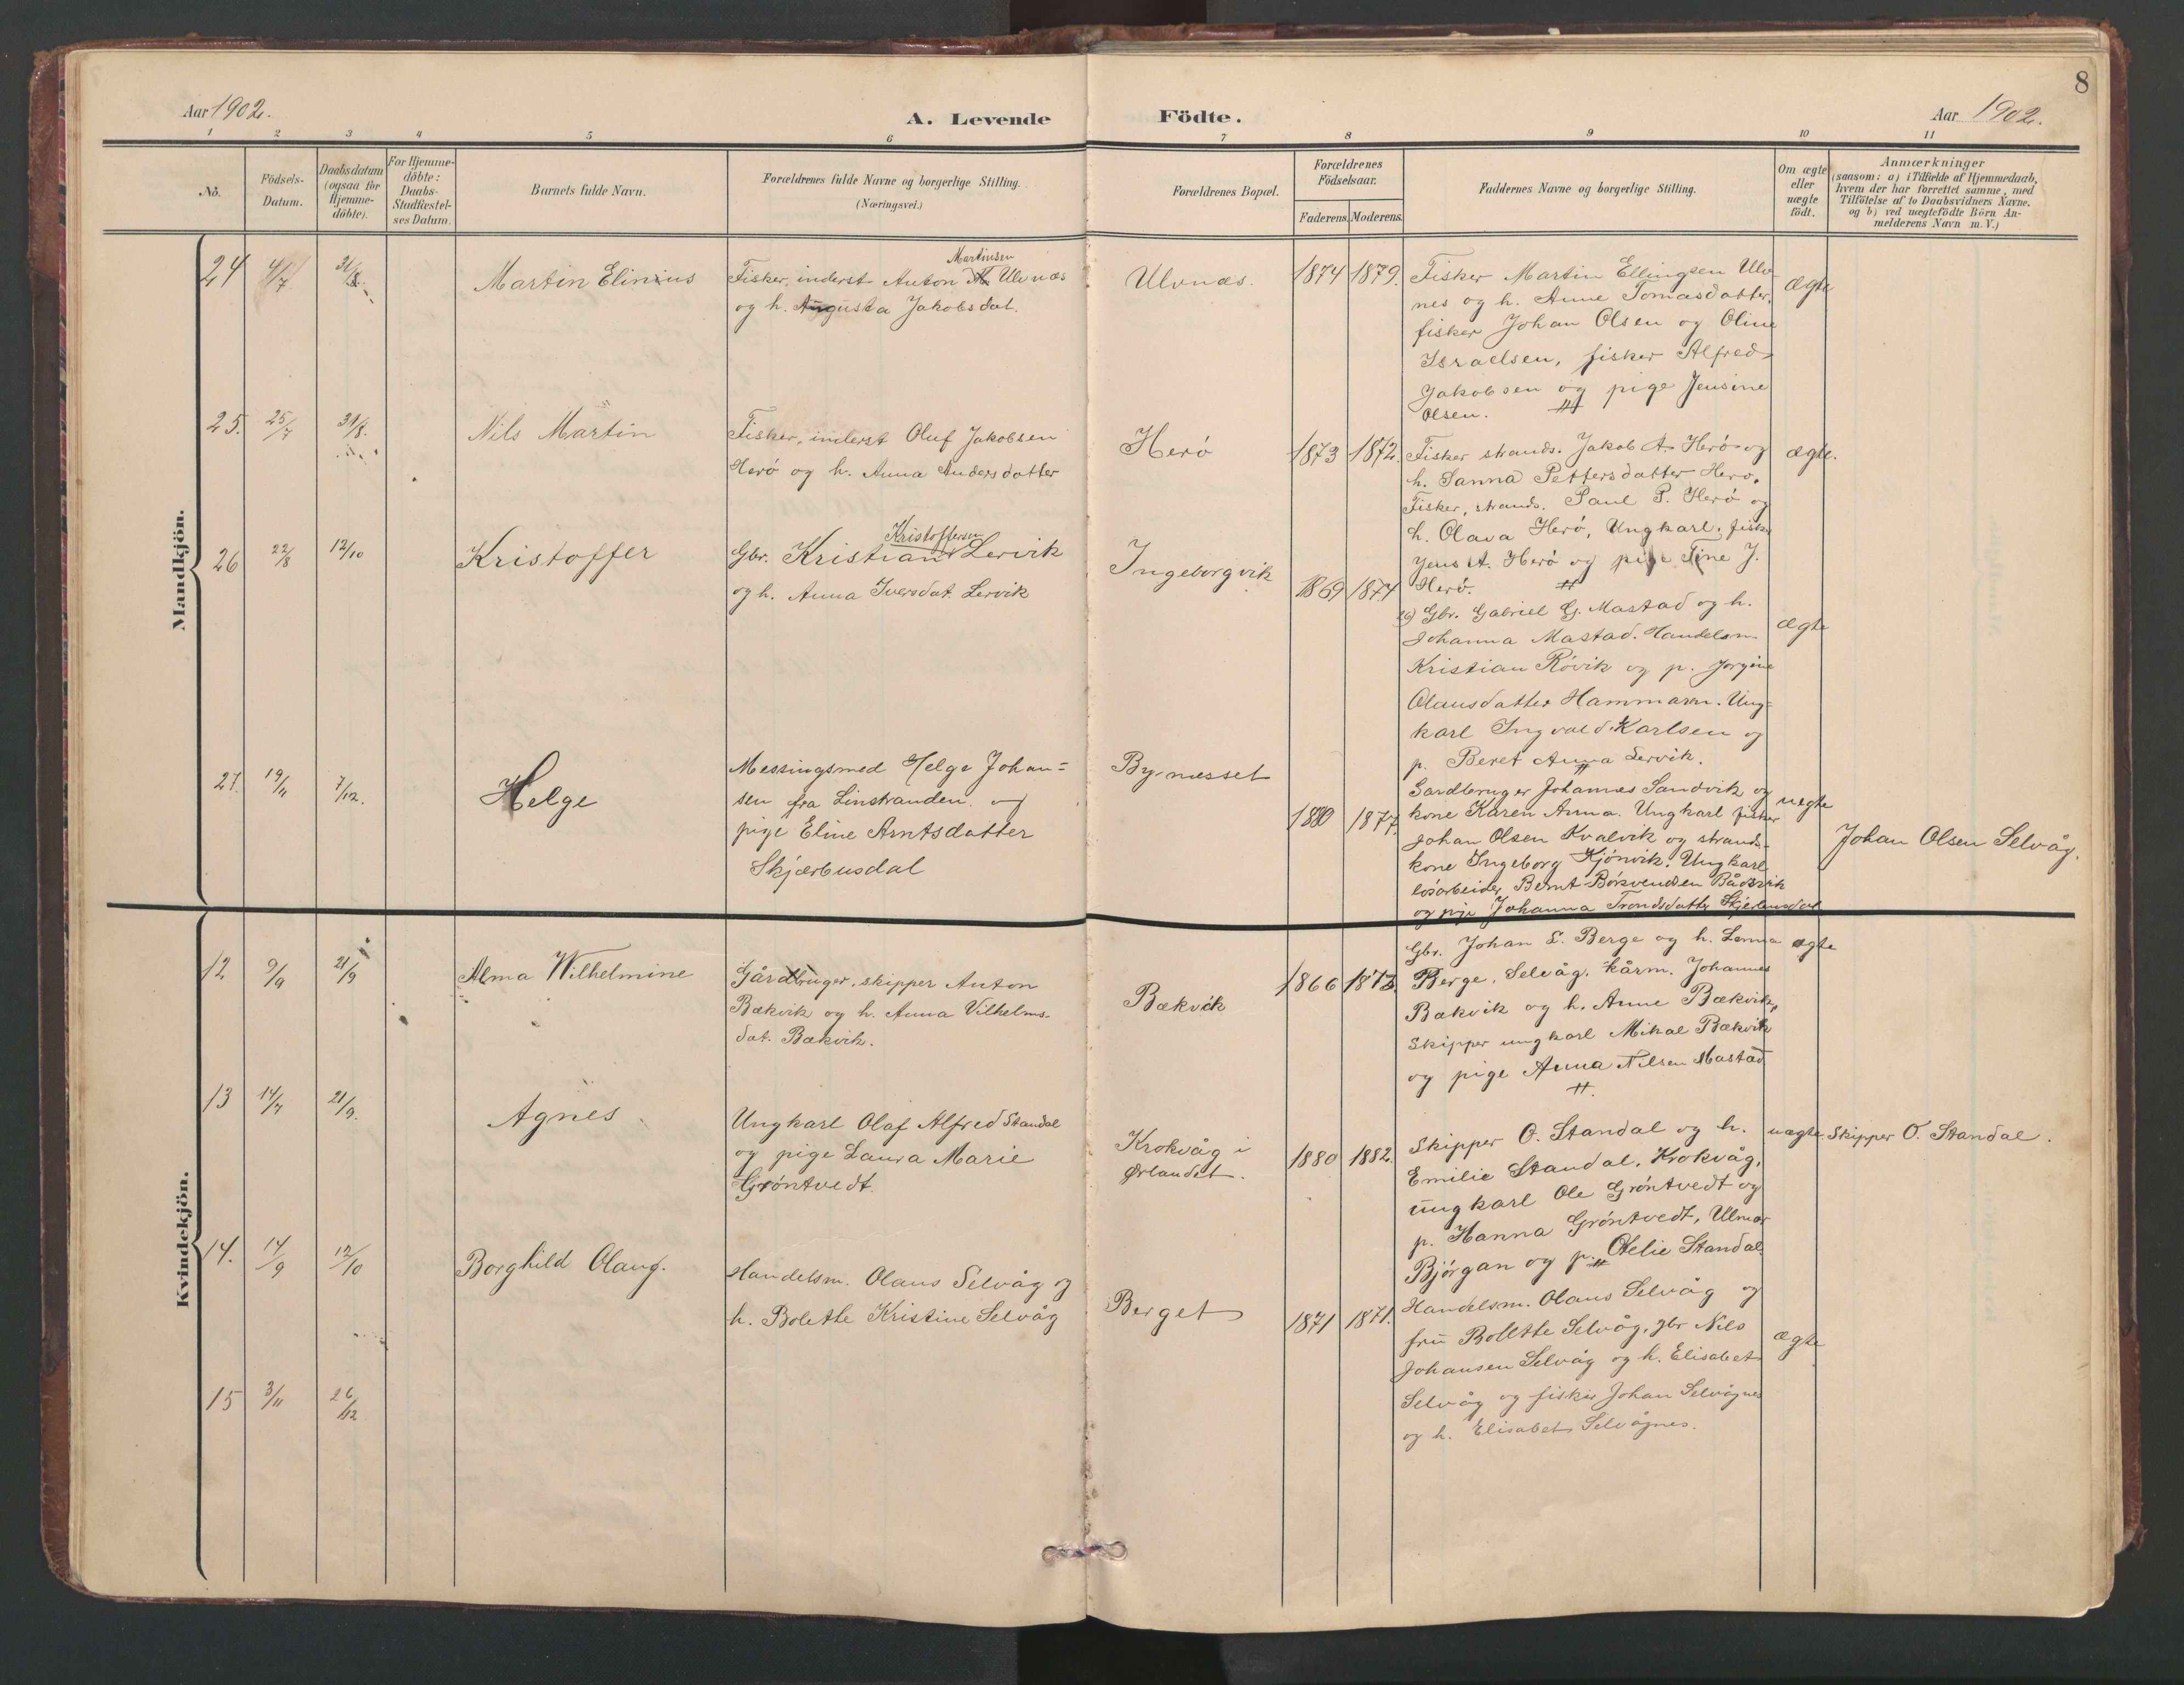 8
Aar 1902.
A. Levende
Födte.
Aar 1902.
1 2 3 4 5 6 7 8 9 10 11
No.
Födsels-
Datum.
Daabsdatum
(ogsaa for
Hjemme-
döbte).
For Hjemme-
döbte:
Daabs-
Stadfæstel-
ses Datum.
Barnets fulde Navn.
Forældrenes fulde Navne og borgerlige Stilling.
(Næringsvei.)
Forældrenes Bopæl.
Forældrenes
Födselsaar.
Faderens. Moderens.
Faddernes Navne og borgerlige Stilling.
Om ægte
eller
uægte
födt.
Anmærkninger
(saasom: a) i Tilfælde af Hjemmedaab,
hvem der har forrettet samme, med
Tilföielse af to Daabsvidners Navne,
og b) ved uægtefödte Börn An-
melderens Navn m. V.)
Mandkjön.
24
4/7
31/8.
Martin Elinius
Martinsen
Fisker, inderst Anton Ulvnæs
og h. Augusta Jakobsdat.
Ulvnæs.
1874 1879.
Fisker Martin Ellingsen Ulv-
nes og h. Anne Tomasdatter,
fisker Johan Olsen og Oline
Israelsen, fisker Alfred
Jakobsen og pige Jensine
Olsen.
ægte
25.
25/7
31/8.
Nils Martin
Fisker, inderst Oluf Jakobsen
Herö og h. Anna Andersdatter
Herö
1873 1872.
Fisker strands. Jakob A. Herö og
h. Sanna Pettersdatter Herö.
Fisker, strands. Paul P. Herö og
h. Olava Herö, Ungkarl, fisk.
Jens A. Herö og pige Tine J.
Herö.
ægte.
26
22/8
12/10
Kristoffer
Kristoffersen
Gbr. Kristian Lervik
og h. Anna Iversdat. Lervik
Ingeborgvik
1869 1874
26) Gbr. Gabriel G. Mastad og h.
Johanna Mastad. Handelsm.
Kristian Rövik og p. Jorgine
Olausdatter Hammarn. Ung-
karl Ingvald Karlsen og
p. Beret Anna Lervik.
ægte
27.
19/11
7/12.
Helge
Messingsmed Helge Johan-
sen fra Linstranden og
pige Eline Arntsdatter
Skjærbusdal
Bynæsset
1880 1877.
Gardbruger Johannes Sandvik og
kone Karen Anna. Ungkarl fisker
Johan Olsen Kvalvik og strands-
kone Ingeborg Kjönvik. Ungkarl
lösarbeider Bernt Bårvik
og pige Johanna Trondsdatter Skjerbusdal
uægte
Johan Olsen Selvåg.
Kvindekjön.
12
9/9
21/9
Alma Wilhelmine
Gårdbruger, skipper Anton
Bækvik og h. Anna Vilhelms-
dat. Bækvik.
Bækvik
1866 1873.
Gbr. Johan L. Berge og h. Lenna
Berge, Selvåg. kårm. Johannes
Bækvik og h. Anne Bækvik,
Skipper ungkarl Mikal Bækvik
og pige Anna Nilsen Mastad
ægte
13
14/7
21/9.
Agnes
Ungkarl Olaf Alfred Standal
og pige Laura Marie
Gröntvedt.
Krokvåg i
Ørlandet.
1880 1882.
Skipper O. Standal og h.
Emilie Standal, Krokvåg,
ungkarl Ole Gröntvedt og
p. Hanna Gröntvedt, Ulmar
Björgan og p. Otelie Standal
uægte.
Skipper O. Standal.
14.
14/9
12/10
Borghild Olaug.
Handelsm. Olaus Selvåg og
h. Bolette Kristine Selvåg
Berget
1871 1871.
Handelsm. Olaus Selvåg og
fru Bolette Selvåg, gbr Nils
Johansen Selvåg og h. Elisabet
Selvåg og fisker Johan Selvågnes
og h. Elisabet Selvågnes.
ægte
15
3/11
26/12